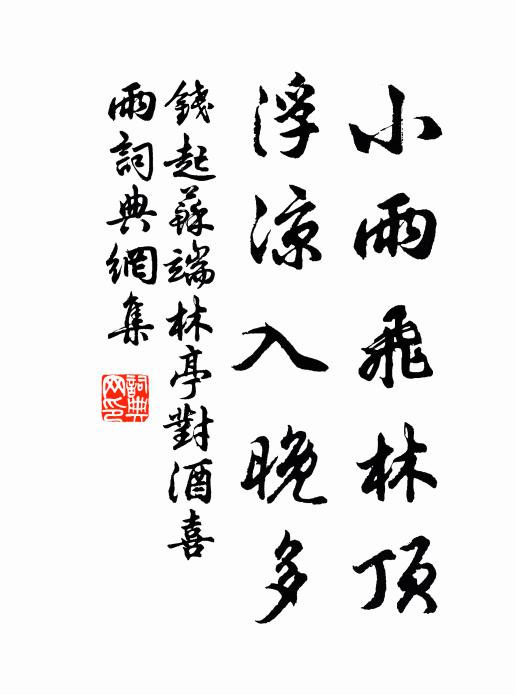 小雨飛林頂
浮涼入晚多
錢起蘇端林亭對酒喜
雨詞典網集
詞典
网印